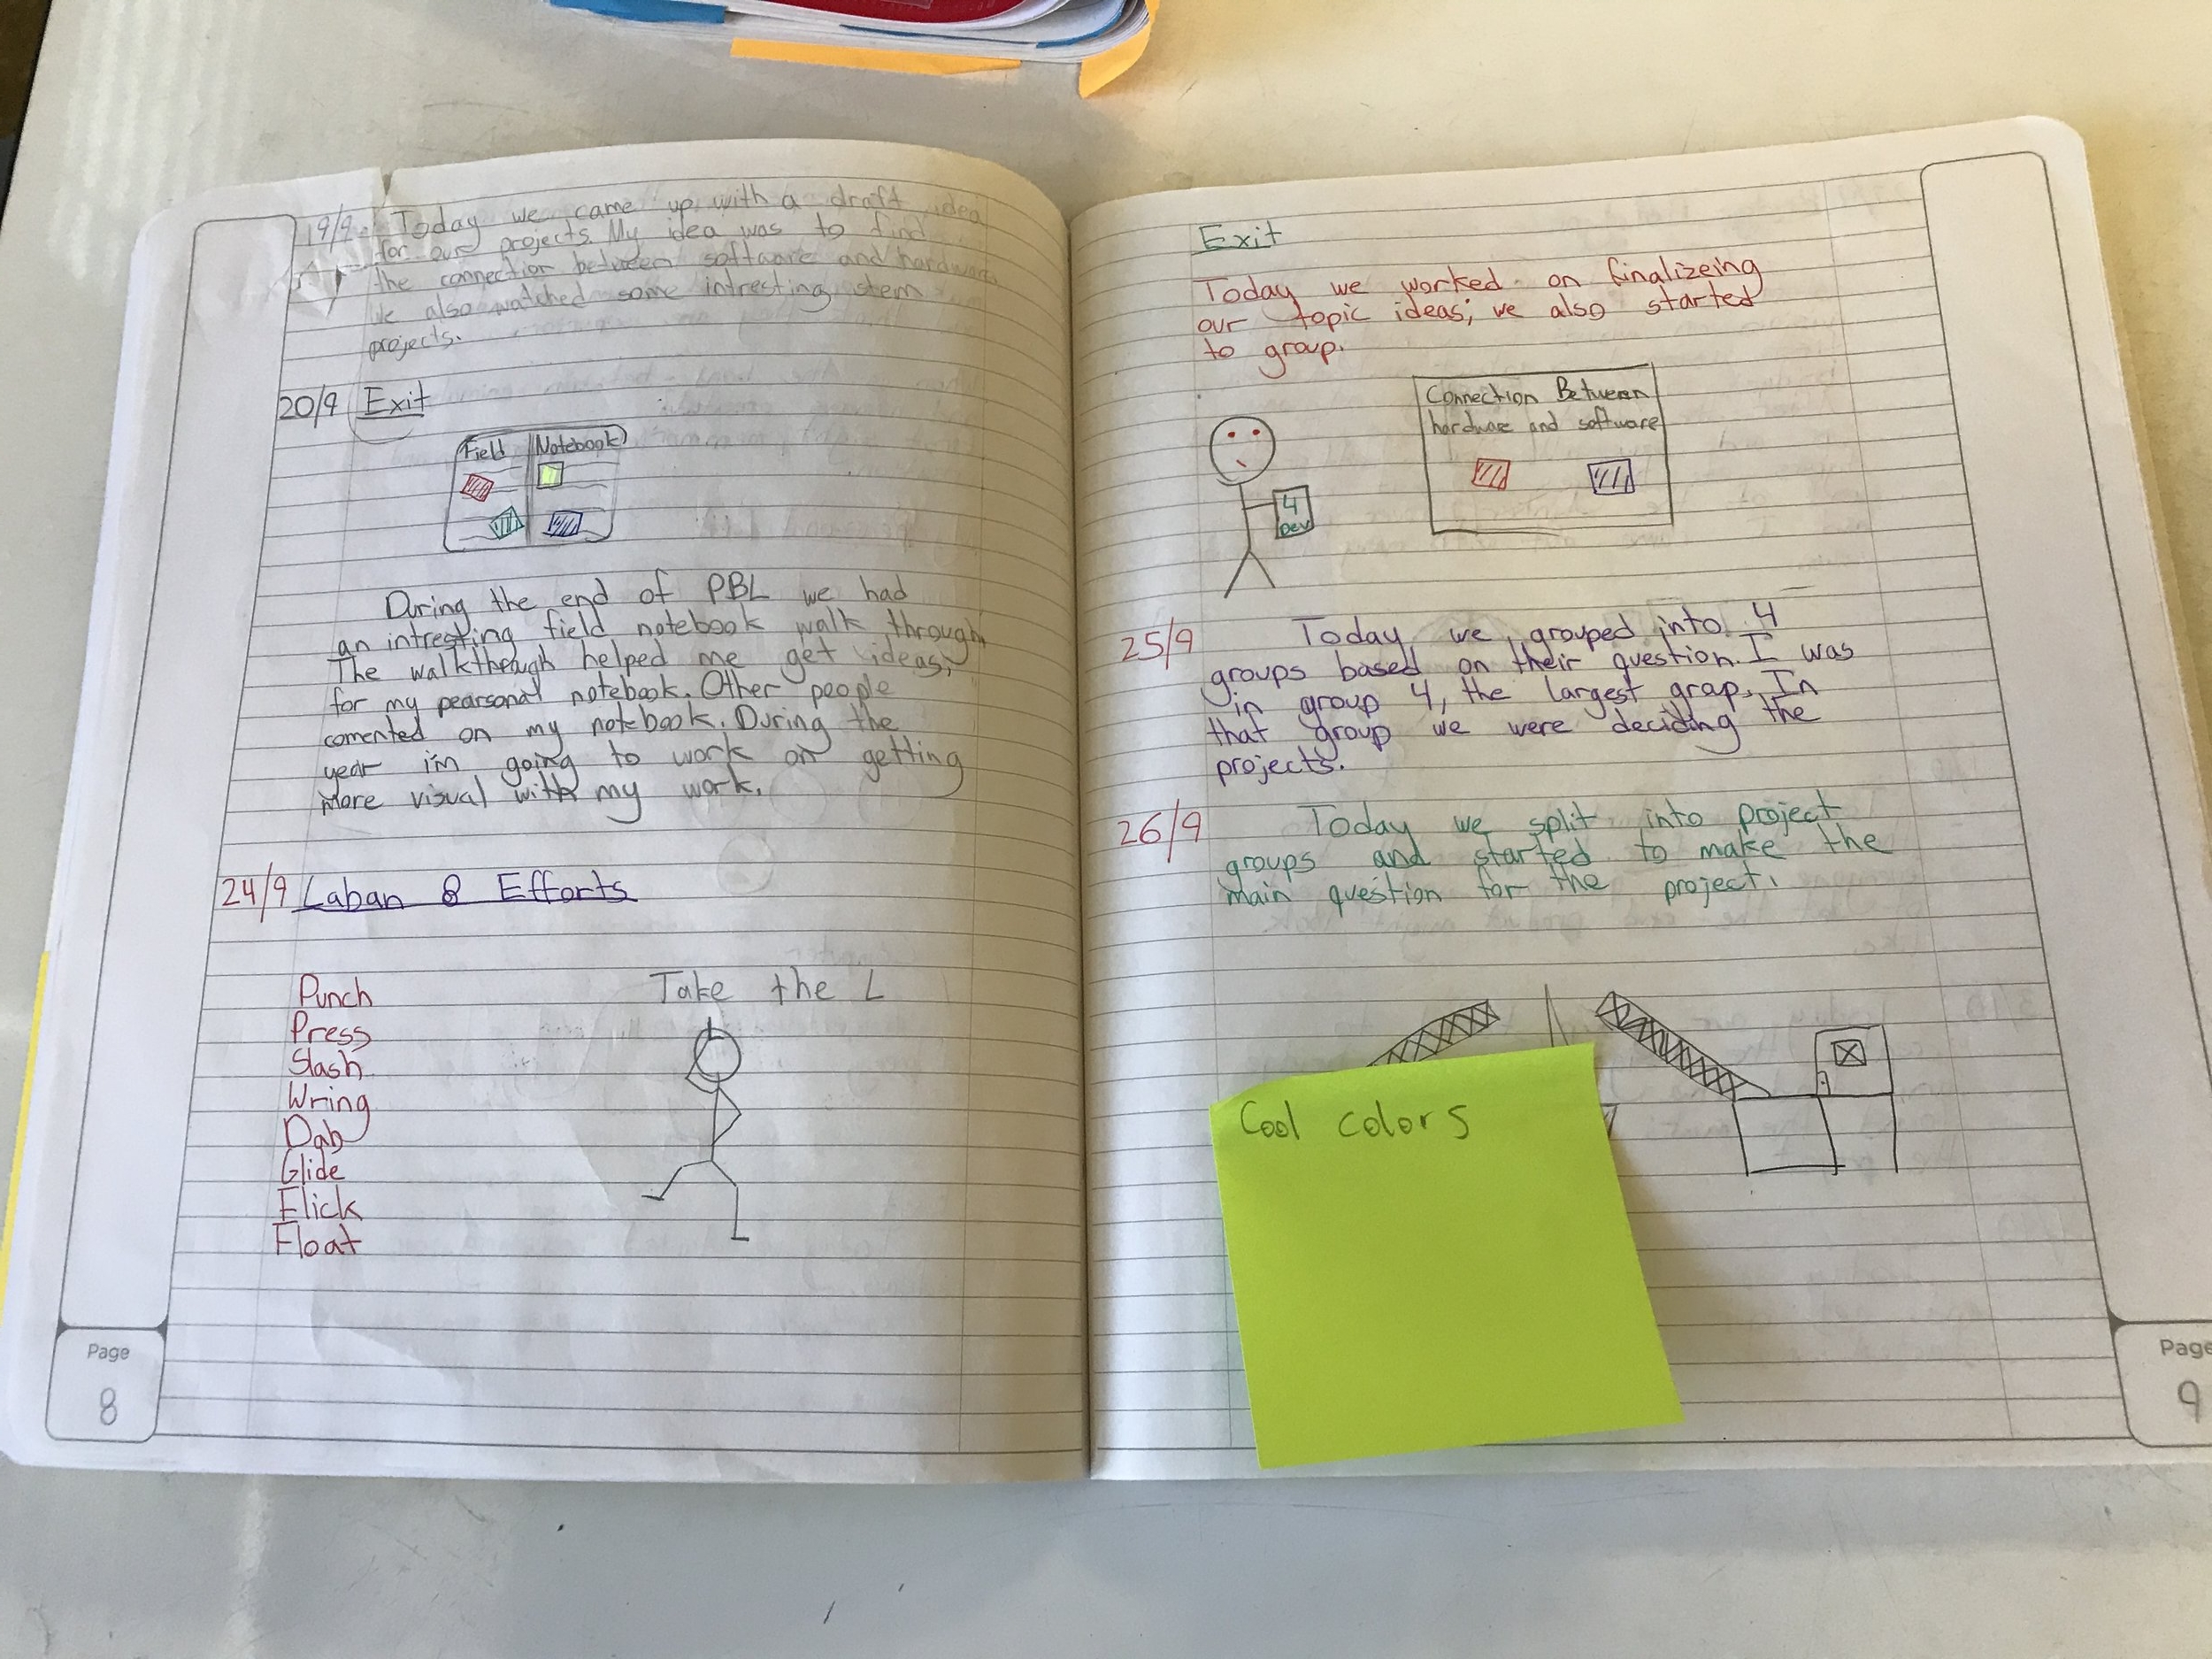 19/9. Today we came up with a draft idea
for our projects. My idea was to find
the connection between software and hardware
We also watched some intresting stem
projects.
20/9 Exit
Field Notebook
During the end of PBL we had
an intresting field notebook walk through
The walkthrough helped me get ideas,
for my pearsonal notebook. Other people
comented on my notebook. During the
year i'm going to work on getting
more visual with my work.
24/9 Laban 8 Efforts
Punch
Press
Slash
Wring
Dab
Glide
Flick
Float
Take the L
Page
8
Exit
Today we worked on finalizeing
our topic ideas; we also started
to group.
Connection Between
hardware and software
4
Dev
25/9 Today we grouped into 4
groups based on their question. I was
in group 4, the largest grap. In
that group we were deciding the
projects.
26/9 Today we split into project
groups and started to make the
main question for the project.
Cool colors
Page
9